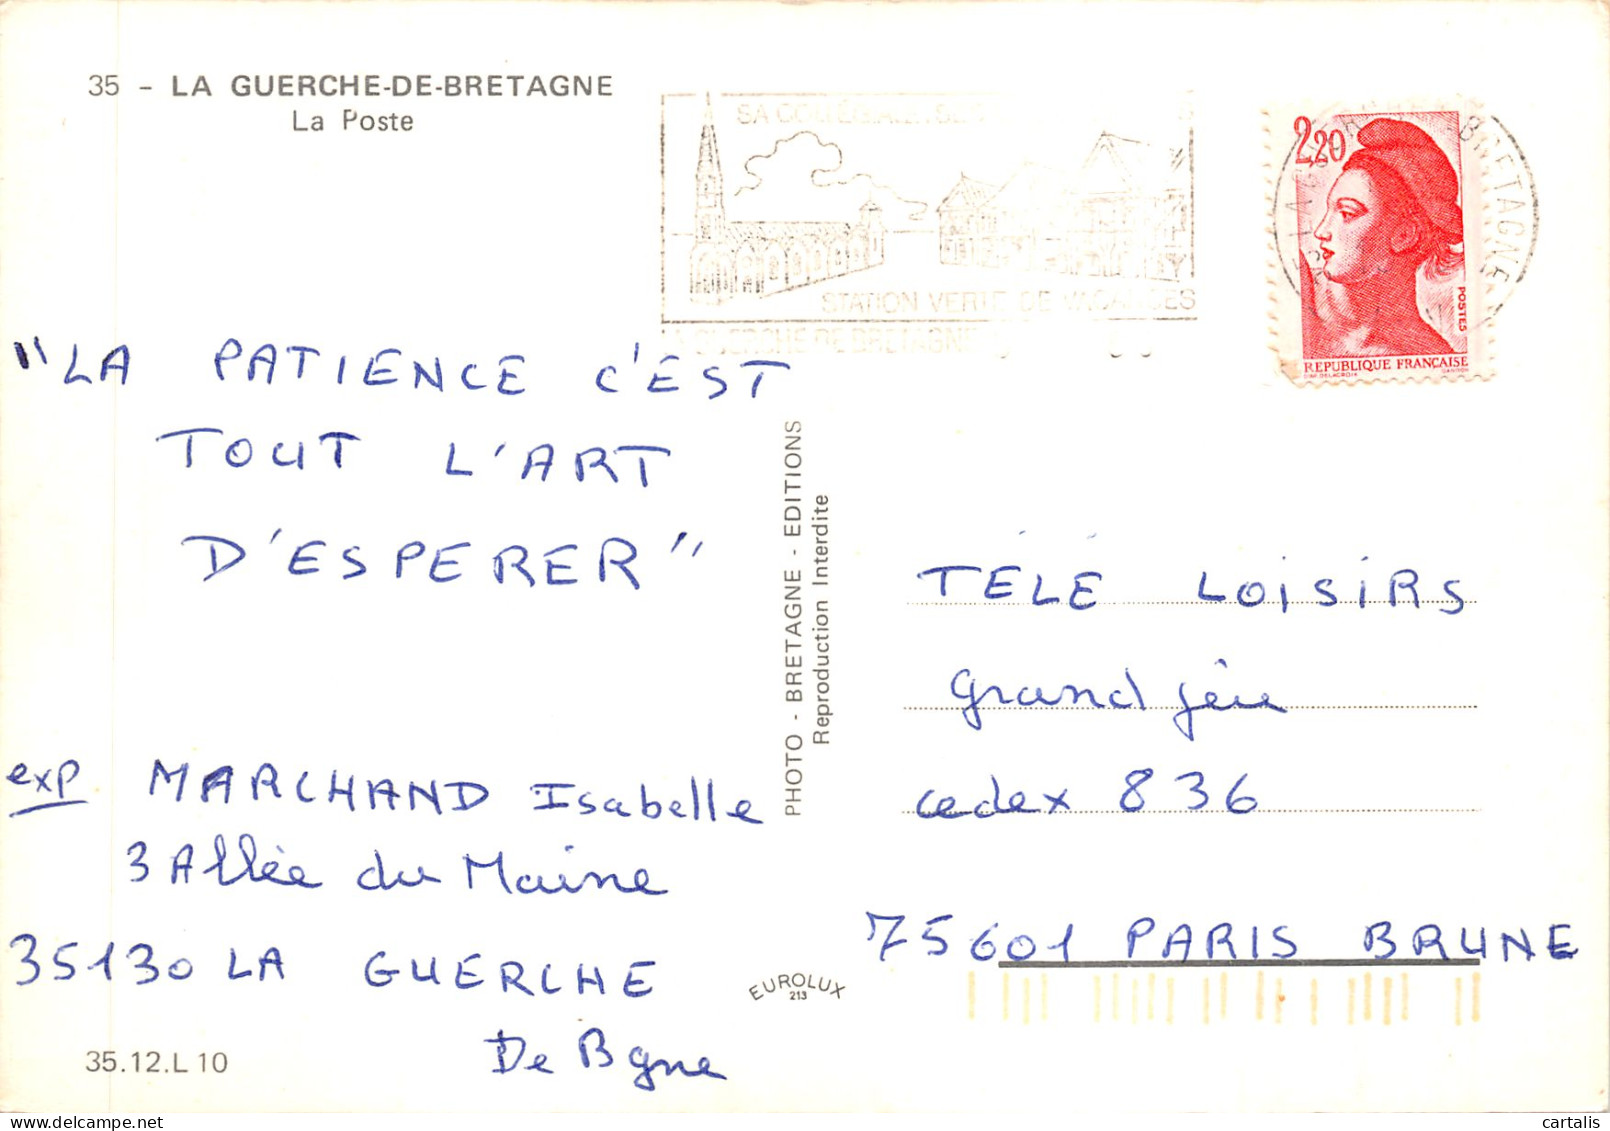 35 - LA GUERCHE-DE-BRETAGNE
La Poste
SA COLLEGIALE
STATION VERTE DE VACANCES
LA GUERCHE DE BRETAGNE
LA GUERCHE DE BRETAGNE
2,20
POSTES
REPUBLIQUE FRANÇAISE
D'AP. DELACROIX GANDON
"LA PATIENCE C'EST
TOUT L'ART
D'ESPERER"
exp MARCHAND Isabelle
3 Allée du Maine
35130 LA GUERCHE
De Bgne
35.12.L 10
PHOTO - BRETAGNE - EDITIONS
Reproduction Interdite
EUROLUX
213
TÉLÉ LOISIRS
grand jeu
cedex 836
75601 PARIS BRUNE
cartalis